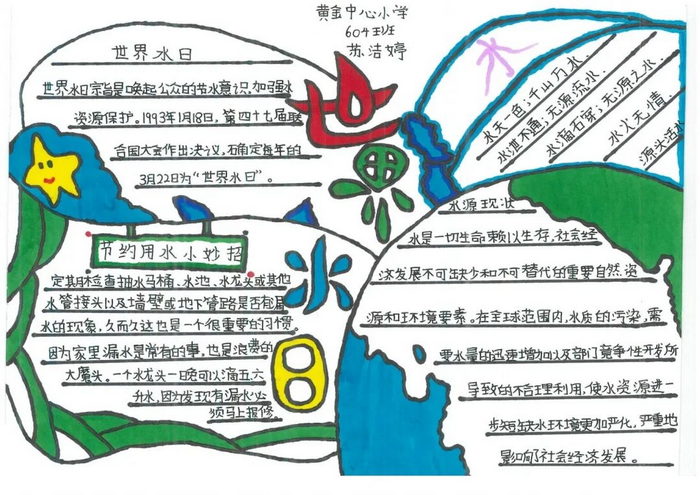 黄金中心小学
604班
苏洁婷
世界水日
世界水日
世界水日宗旨是唤起公众的节水意识,加强水
资源保护。1993年1月18日,第四十七届联
合国大会作出决议,确定每年的
3月22日为“世界水日”。
水
水天一色;千山万水
水泄不通;无源流水.
水滴石穿;无源之水
水火无情.
源头活水
节约用水小妙招
定期检查抽水马桶、水池、水龙头或其他
水管接头以及墙壁或地下管路是否有漏
水的现象,久而久这也是一个很重要的习惯。
因为家里漏水是常有的事,也是浪费的
大魔头。一个水龙头一日兔可以滴五六
升水,因为发现有漏水必
须马上报修。
水源现状
水是一切生命赖以生存,社会经
济发展不可缺少和不可替代的重要自然资
源和环境要素。在全球范围内,水质的污染,需
要水量的迅速增加以及部门竞争性开发所
导致的不合理利用,使水资源进一
步短缺水环境更加严化,严重地
影响了社会经济发展。